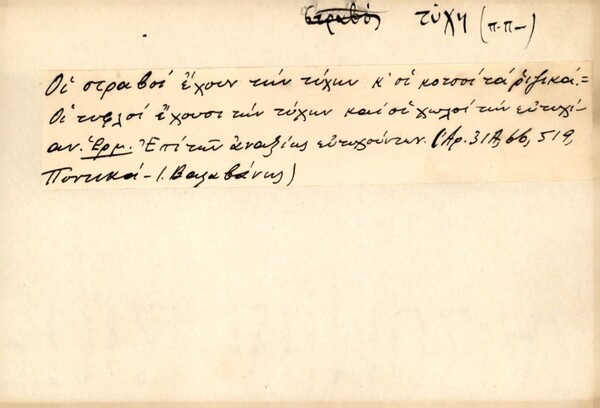 στραβός τύχη (π-π-)
Οἱ στραβοί ἔχουν τήν τύχην κ' οἱ κοτσοί τά ῥιζικά.=
Οἱ τυφλοί ἔχουσι τήν τύχην καί οἱ χωλοί τήν εὐτυχί-
αν. Ἑρμ. Ἐπί τῶν ἀναξίως εὐτυχούντων. (Ἀρ. 31Α, 66, 519,
Ποντικά - Ι. Βαλαβάνης)